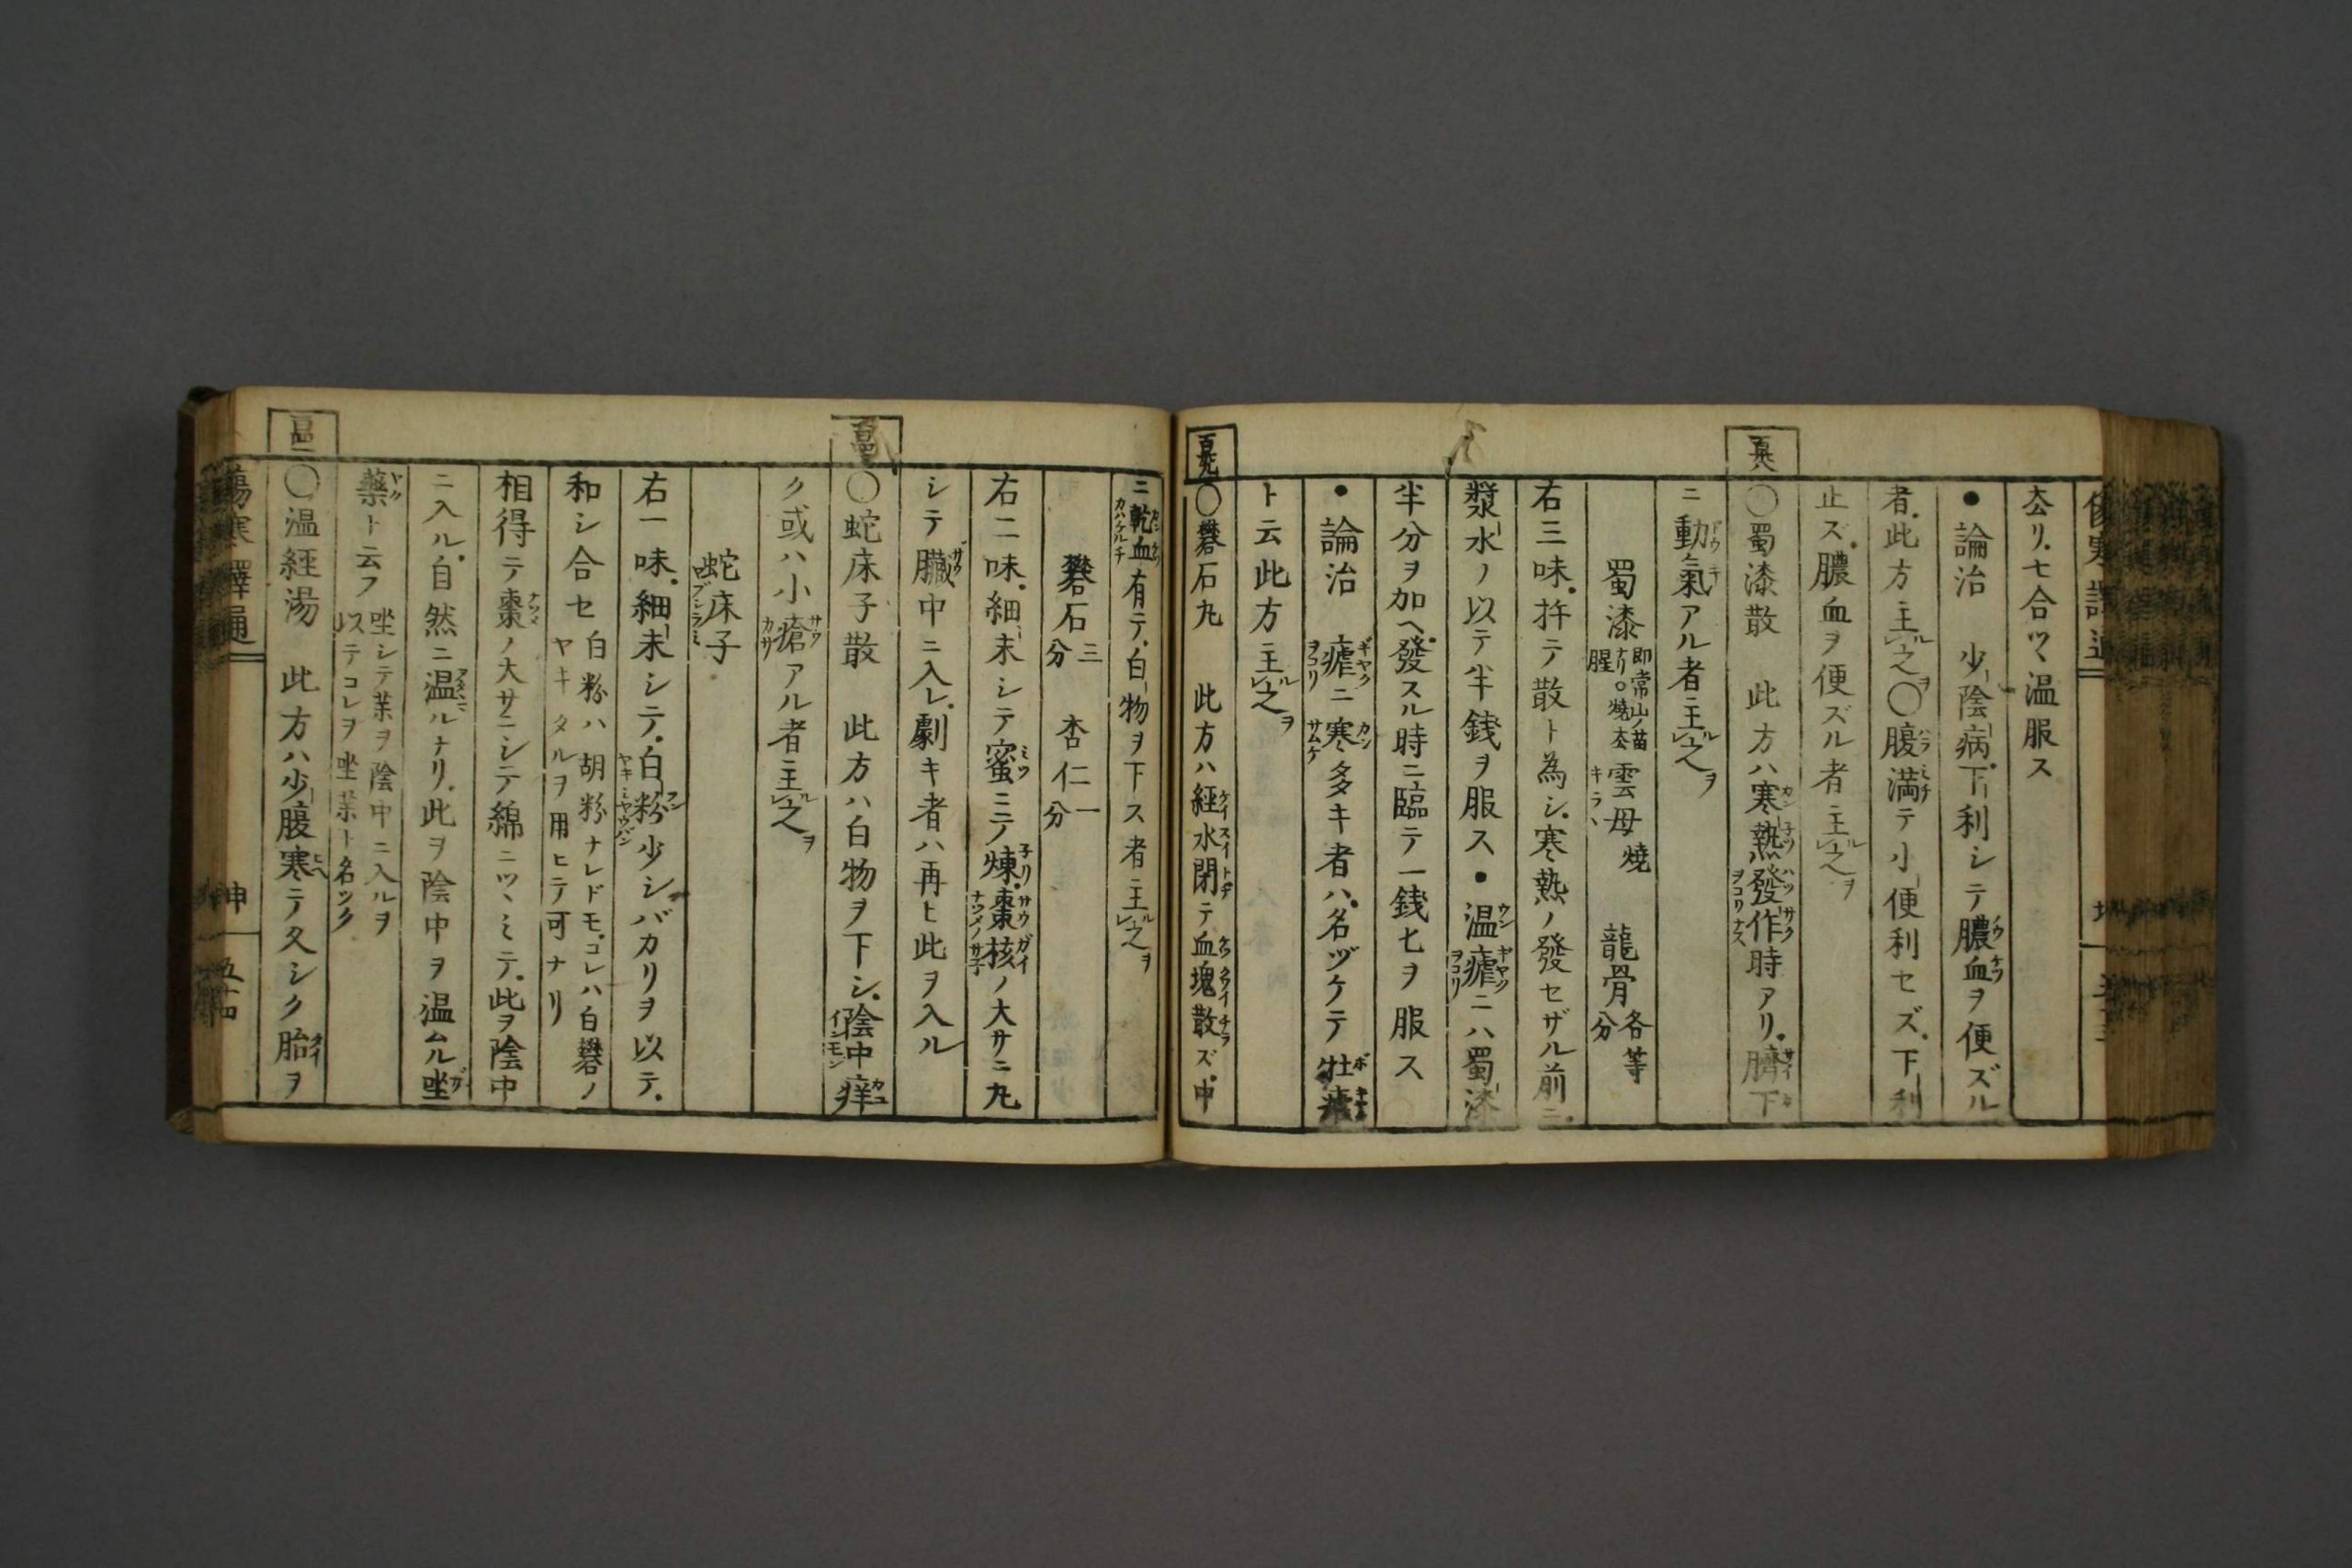 去リ.七合ツヽ温服ス
● 論治 少陰病.下利シテ膿血ヲ便ズル
者.此方主之ヲ○腹満テ小便利セズ.下利
止ズ.膿血ヲ便ズル者主之ヲ
○蜀漆散 此方ハ寒熱發作時アリ.臍下
ニ動氣アル者主之ヲ
蜀漆 即常山ノ苗ナリ。焼去腥 雲母 焼 龍骨 各等分
右三味.杵テ散ト為シ.寒熱ノ發セザル前ニ.
漿水ノ以テ半錢ヲ服ス●温瘧ニハ蜀漆
半分ヲ加ヘ.發スル時ニ臨テ一錢匕ヲ服ス
● 論治 瘧ニ寒多キ者ハ.名ヅケテ牡瘧
ト云此方主之ヲ
○礬石丸 此方ハ経水閉テ血塊散ズ.中
ニ乾血有テ.白物ヲ下ス者主之ヲ
礬石 三分 杏仁 一分
右二味.細末シテ蜜ニテ煉.棗核ノ大サニ丸
シテ臓中ニ入レ.劇キ者ハ再ヒ此ヲ入ル
○蛇床子散 此方ハ白物ヲ下シ.陰中痒
ク或ハ小瘡アル者主之ヲ
蛇床子
右一味.細末シテ.白粉少シバカリヲ以テ.
和シ合セ 白粉ハ胡粉ナレドモ.コレハ白礬ノヤキタルヲ用ヒテ可ナリ
相得テ棗ノ大サニシテ綿ニツヽミテ.此ヲ陰中
ニ入ル.自然ニ温ルナリ.此ヲ陰中ヲ温ムル坐
藥ト云フ 坐シテ茉ヲ陰中ニ入ルヲルステコレヲ坐茉ト名ツク
○温経湯 此方ハ少腹寒テ久シク胎ヲ